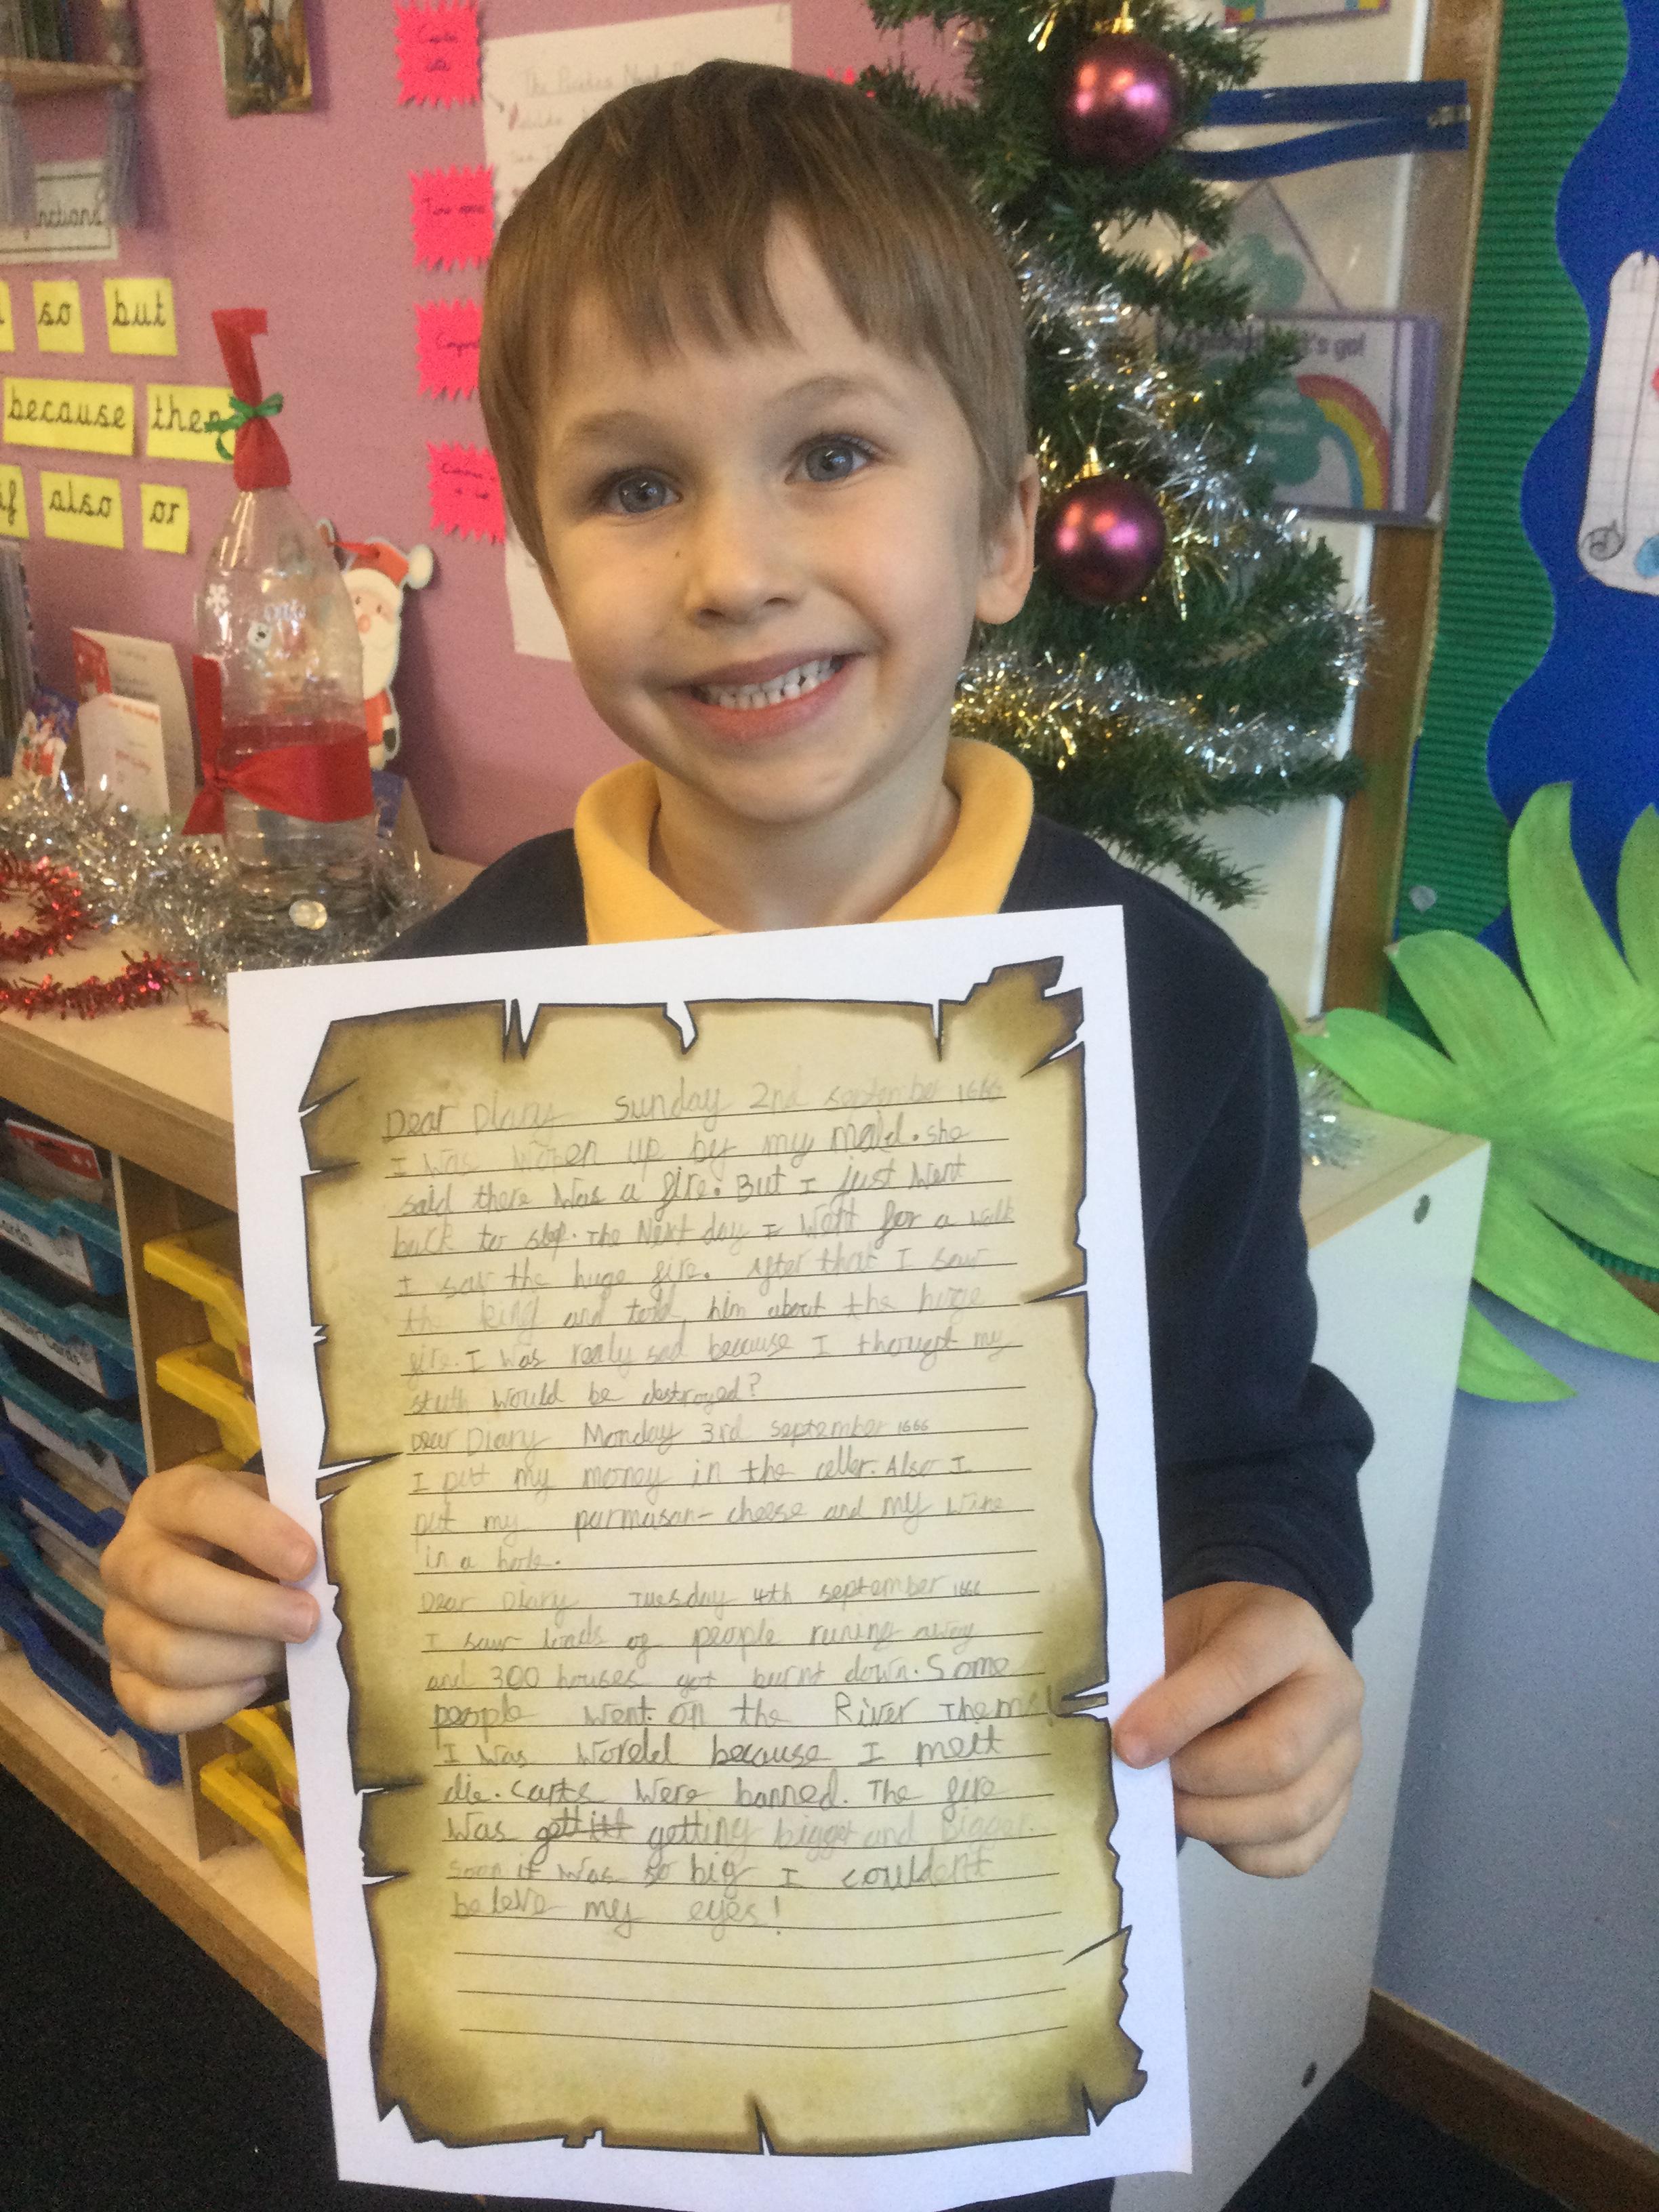 so but
because then
if also or
Dear Diary Sunday 2nd september 1666
I was woken up by my maid. she
said there was a fire. But I just went
back to slep. The Next day I went for a walk
I saw the huge fire. After that I saw
the king and told him about the huge
fire. I was realy sad because I thought my
stuth would be destroyed?
Dear Diary Monday 3rd september 1666
I put my money in the celler. Also I
put my parmasan- cheese and my wine
in a hole.
Dear Diary Tuesday 4th september 1666
I saw loads of people runing away
and 300 houses got burnt down. Some
people went on the River Thems!
I was woredd because I meit
die. carts were banned. The fire
was getting bigger and Bigger.
soon it was so big I couldent
beleve my eyes!